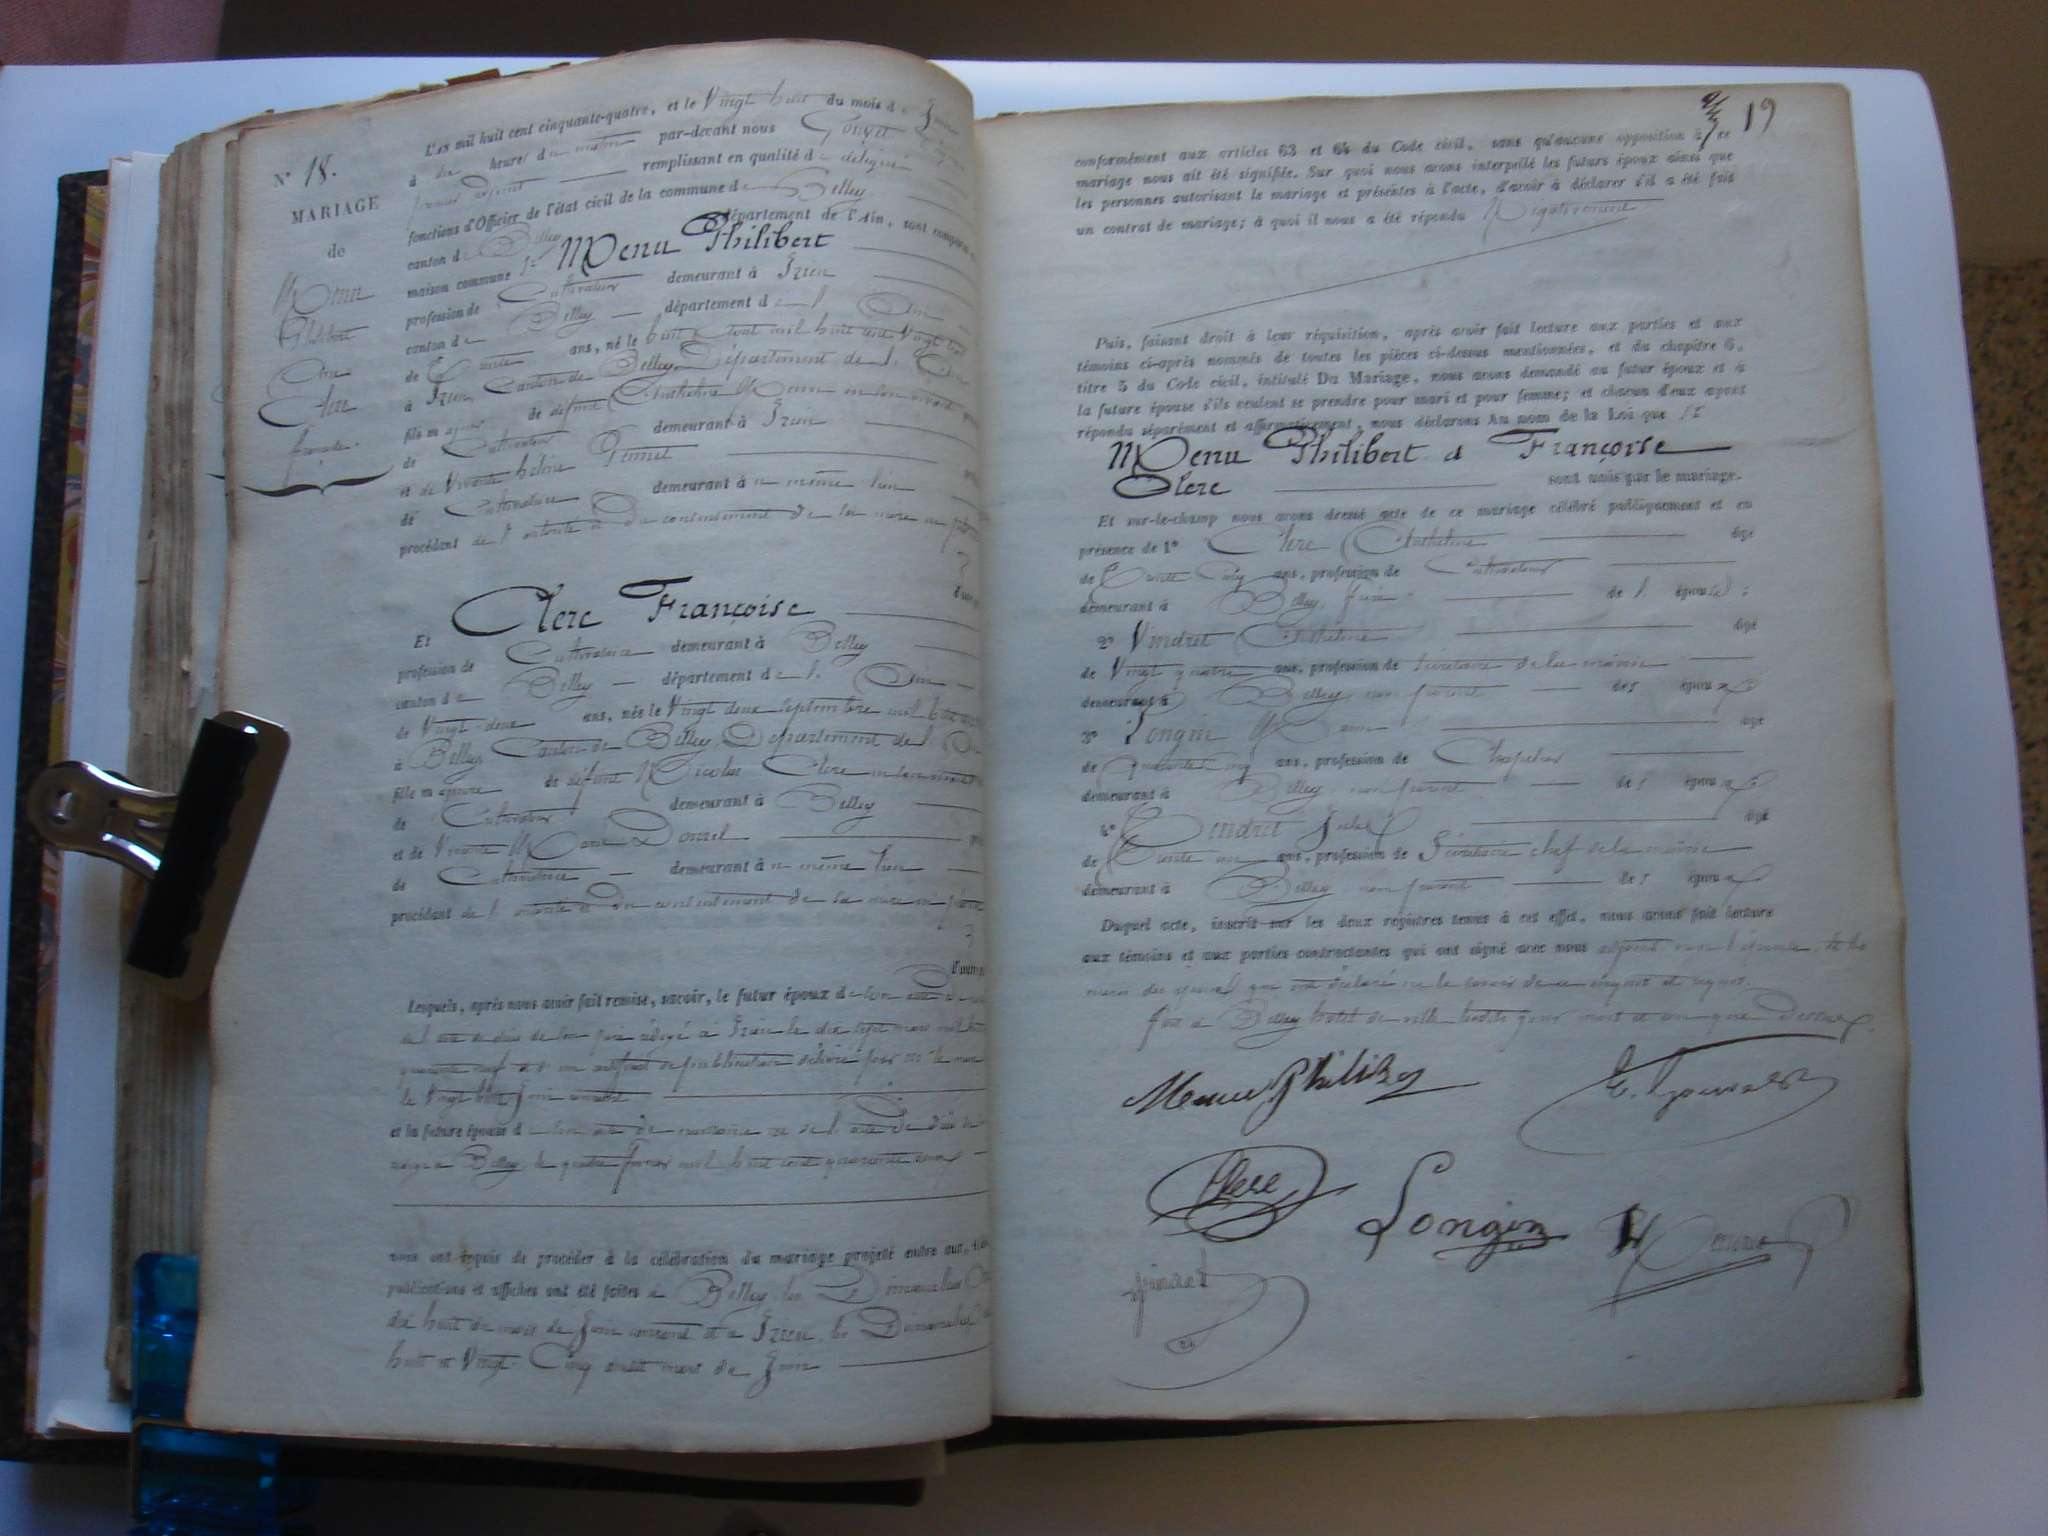 N° 18.
MARIAGE
de
Menu
Philibert
Avec
Clerc
Françoise
L'an mil huit cent cinquante-quatre, et le Vingt huit du mois de Juin
à dix heures du matin par-devant nous
premier adjoint remplissant en qualité de délégué
fonctions d'Officier de l'état civil de la commune de Belley
canton de Belley département de l'Ain, sont comparus
maison commune 1° Menu Philibert
profession de Cultivateur demeurant à Izieu
canton de Belley département de l'Ain
de Trente ans, né le huit Aout mil huit cent Vingt
à Izieu, Canton de Belley, Département de l'Ain
fils majeur de défunt Anthelme Menu en son vivant
de Cultivateur demeurant à Izieu
et de Vivante
de Cultivatrice demeurant à u même lieu
procédant de l'autorité et du consentement de la mère ici présente
Et Clerc Françoise
profession de Cultivatrice demeurant à Belley
canton de Belley département de l'Ain
de Vingt deux ans, née le Vingt deux septembre mil huit cent
à Belley, Canton de Belley, Département de l'Ain
fille majeure de défunt Nicolas Clerc en son vivant
de Cultivateur demeurant à Belley
et de Vivante Marie
de Cultivatrice demeurant à u même lieu
procédant de l'autorité et du consentement de la mère ici présente
Lesquels, après nous avoir fait remise, savoir, le futur époux de son acte de
de l'acte de décès de son père rédigé à Izieu le dix sept mars mil huit
quarante neuf et d'un certificat de publication délivré par M. le maire
le Vingt huit Juin courant
et la future épouse de son acte de naissance et de l'acte de décès de
rédigé à Belley le quatre février mil huit cent quarante
nous ont requis de procéder à la célébration du mariage projeté entre eux,
publications et affiches ont été faites à Belley, les Dimanches
dix huit du mois de Juin courant et à Izieu, les Dimanches
huit et Vingt-Cinq dudit mois de Juin
19
conformément aux articles 63 et 64 du Code civil, sans qu'aucune opposition à ce
mariage nous ait été signifiée. Sur quoi nous avons interpellé les futurs époux ainsi que
les personnes autorisant le mariage et présentes à l'acte, d'avoir à déclarer s'il a été fait
un contrat de mariage; à quoi il nous a été répondu Négativement
Puis, faisant droit à leur réquisition, après avoir fait lecture aux parties et aux
témoins ci-après nommés de toutes les pièces ci-dessus mentionnées, et du chapitre 6,
titre 5 du Code civil, intitulé Du Mariage, nous avons demandé au futur époux et à
la future épouse s'ils veulent se prendre pour mari et pour femme; et chacun d'eux ayant
répondu séparément et affirmativement, nous déclarons Au nom de la Loi que
Menu Philibert et Françoise
Clerc sont unis par le mariage.
Et sur-le-champ nous avons dressé acte de ce mariage célébré publiquement et en
présence de 1° Clerc Anthelme âgé
de Trente Cinq ans, profession de Cultivateur
demeurant à Belley, frère de l'épouse;
2° Vindret Anthelme âgé
de Vingt quatre ans, profession de secrétaire de la mairie
demeurant à Belley, non parent des époux
3° Longin âgé
de Quarante Cinq ans, profession de Chapelier
demeurant à Belley, non parent des époux
4° âgé
de Trente un ans, profession de Secrétaire chef de la mairie
demeurant à Belley, non parent des époux
Duquel acte, inscrit sur les deux registres tenus à cet effet, nous avons fait lecture
aux témoins et aux parties contractantes qui ont signé avec nous adjoint, non l'épouse et les
mères des époux qui ont déclaré ne le savoir de ce enquis et requis.
fait à Belley hotel de ville lesdits jour mois et an que dessus.
Menu Philibert
Clerc
Longin